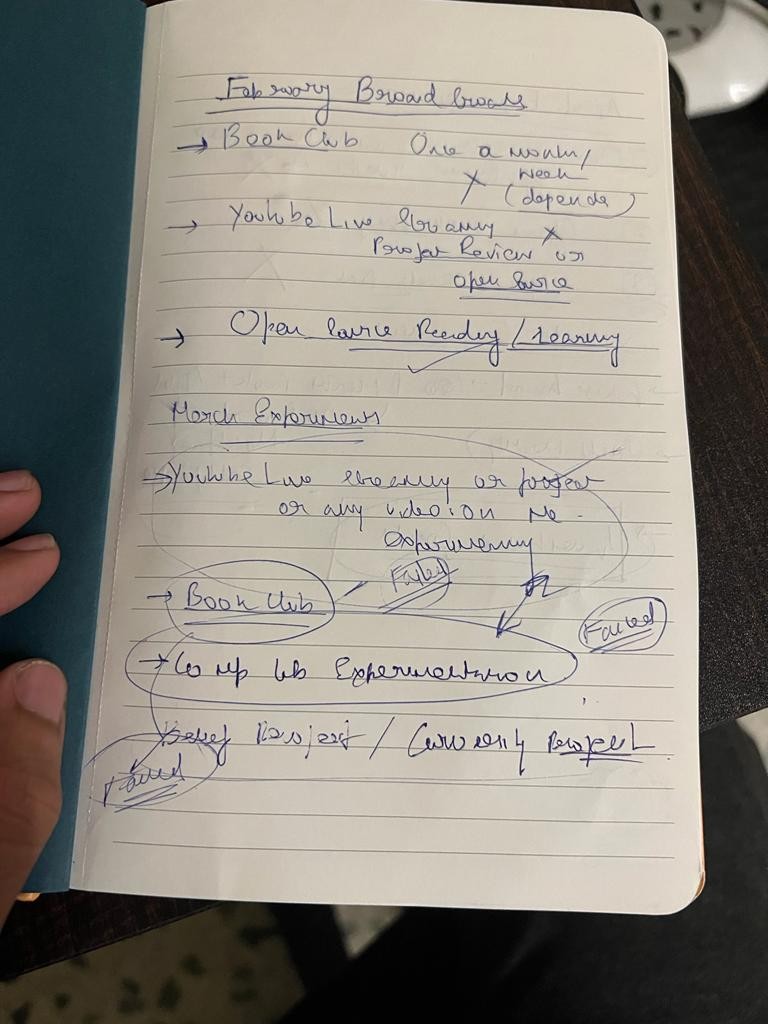 February Broad Goals
→ Book Club One a month/
week
X (depends)
→ Youtube Live Streaming X
Project Review or
open source
→ Open Source Reading / Learning
March Experiments
→ Youtube Live streaming or project
or any video on me
experimenting
→ Book Club Failed
Failed
→ Comp Experimentation
Project / Currently Project
Failed